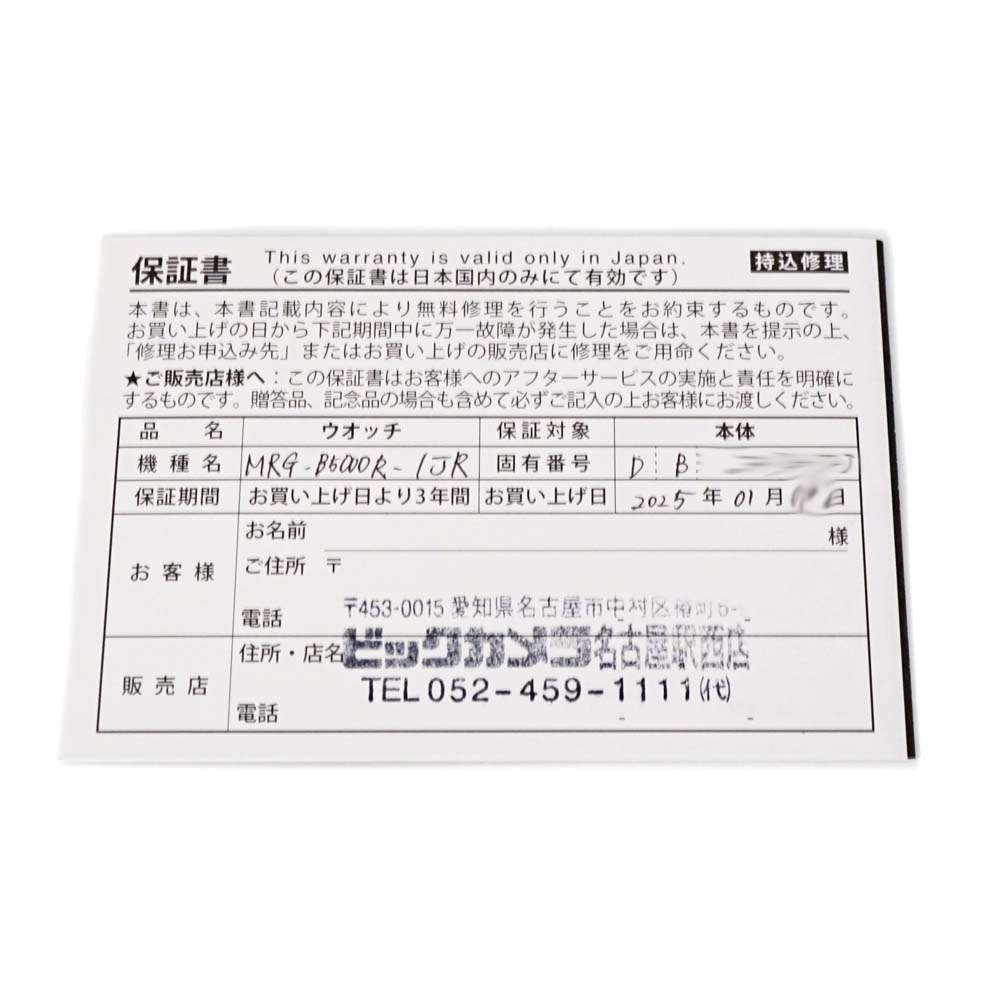 保証書
This warranty is valid only in Japan.
(この保証書は日本国内のみにて有効です)
持込修理
本書は、本書記載内容により無料修理を行うことをお約束するものです。
お買い上げの日から下記期間中に万一故障が発生した場合は、本書を提示の上、
「修理お申込み先」またはお買い上げの販売店に修理をご用命ください。
★ご販売店様へ：この保証書はお客様へのアフターサービスの実施と責任を明確に
するものです。贈答品、記念品の場合も含めて必ずご記入の上お客様にお渡しください。
品名 ウオッチ 保証対象 本体
機種名 MRG-B5000R-1JR 固有番号 D B
保証期間 お買い上げ日より3年間 お買い上げ日 2025年01月 日
お客様
お名前 様
ご住所 〒
電話
〒453-0015 愛知県名古屋市中村区椿町6-
販売店
住所・店名
ビックカメラ名古屋駅西店
TEL 052-459-1111(代)
電話